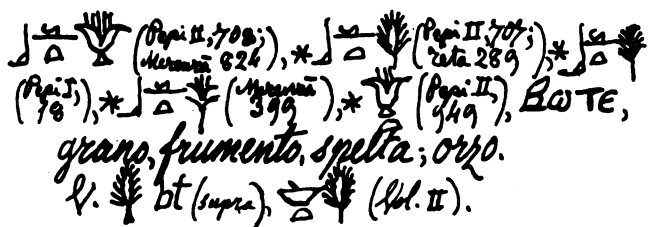 (Pepi II, 708; Merenrā 824), * (Pepi II, 707; Teta 289), *
(Pepi I, 78), * (Merenrā 399), * (Pepi II, 949), ⲂⲰⲦⲈ,
grano, frumento, spelta; orzo.
V. bt (supra), (Vol. II).